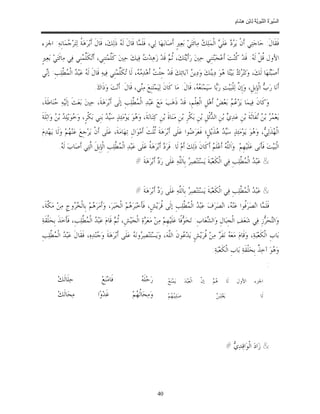 السيرة النبوية لابن هشام
فقال: حاجتي أن يرد علي الملك مائتي بعير أصابها لي، فلما قال له ذلك، قال أبرهة لترجمانه: الجزء
الأول قل له: قد كنت أعجبتني حين رأيتك، ثم قد زهدت فيك حين كلمتني، أتكلمني في مائتي بعير
أصبتها لك، وتترك بيتا هو دينك ودين آبائك قد جئت أهدمه، لا تكلمني فيه قال له عبد المطلب: إني
أنا رب الإبل، وإن للبيت ربا سيمنعه، قال: ما كان ليمتنع مني، قال: أنت وذاك
وكان فيما يزعم بعض أهل العلم، قد ذهب مع عبد المطلب إلى أبرهة، حين بعث إليه حناطة،
يعمر بن نفاثة بن عدي بن الدئل بن بكر بن مناة بن كنانة، وهو يومئذ سيد بني بكر، وخويلد بن واثلة
الهذلي، وهو يومئذ سيد هذيل، فعرضوا على أبرهة ثلث أموال تهامة، على أن يرجع عنهم ولا يهدم
البيت فأبى عليهم. والله أعلم أكان ذلك أم لا. فرد أبرهة على عبد المطلب الإبل التي أصاب له.
& عبد المطلب في الكعبة يستنصر بالله على رد أبرهة #
& عبد المطلب في الكعبة يستنصر بالله على رد أبرهة #
فلما انصرفوا عنه، انصرف عبد المطلب إلى قريش، فأخبرهم الخبر، وأمرهم بالخروج من مكة،
والتحرز في شعف الجبال والشعاب: تخوفا عليهم من معرة الجيش، ثم قام عبد المطلب، فأخذ بحلقة
باب الكعبة، وقام معه نفر من قريش يدعون الله، ويستنصرونه على أبرهة وجنده، فقال عبد المطلب
وهو آخذ بحلقة باب الكعبة:
الجزء الأول لا هم إن العبد يمنع رحله فامنع حلالك
لا يغلبن صليبهم ومحالهم غدوا محالك
& زاد الواقدي #
40